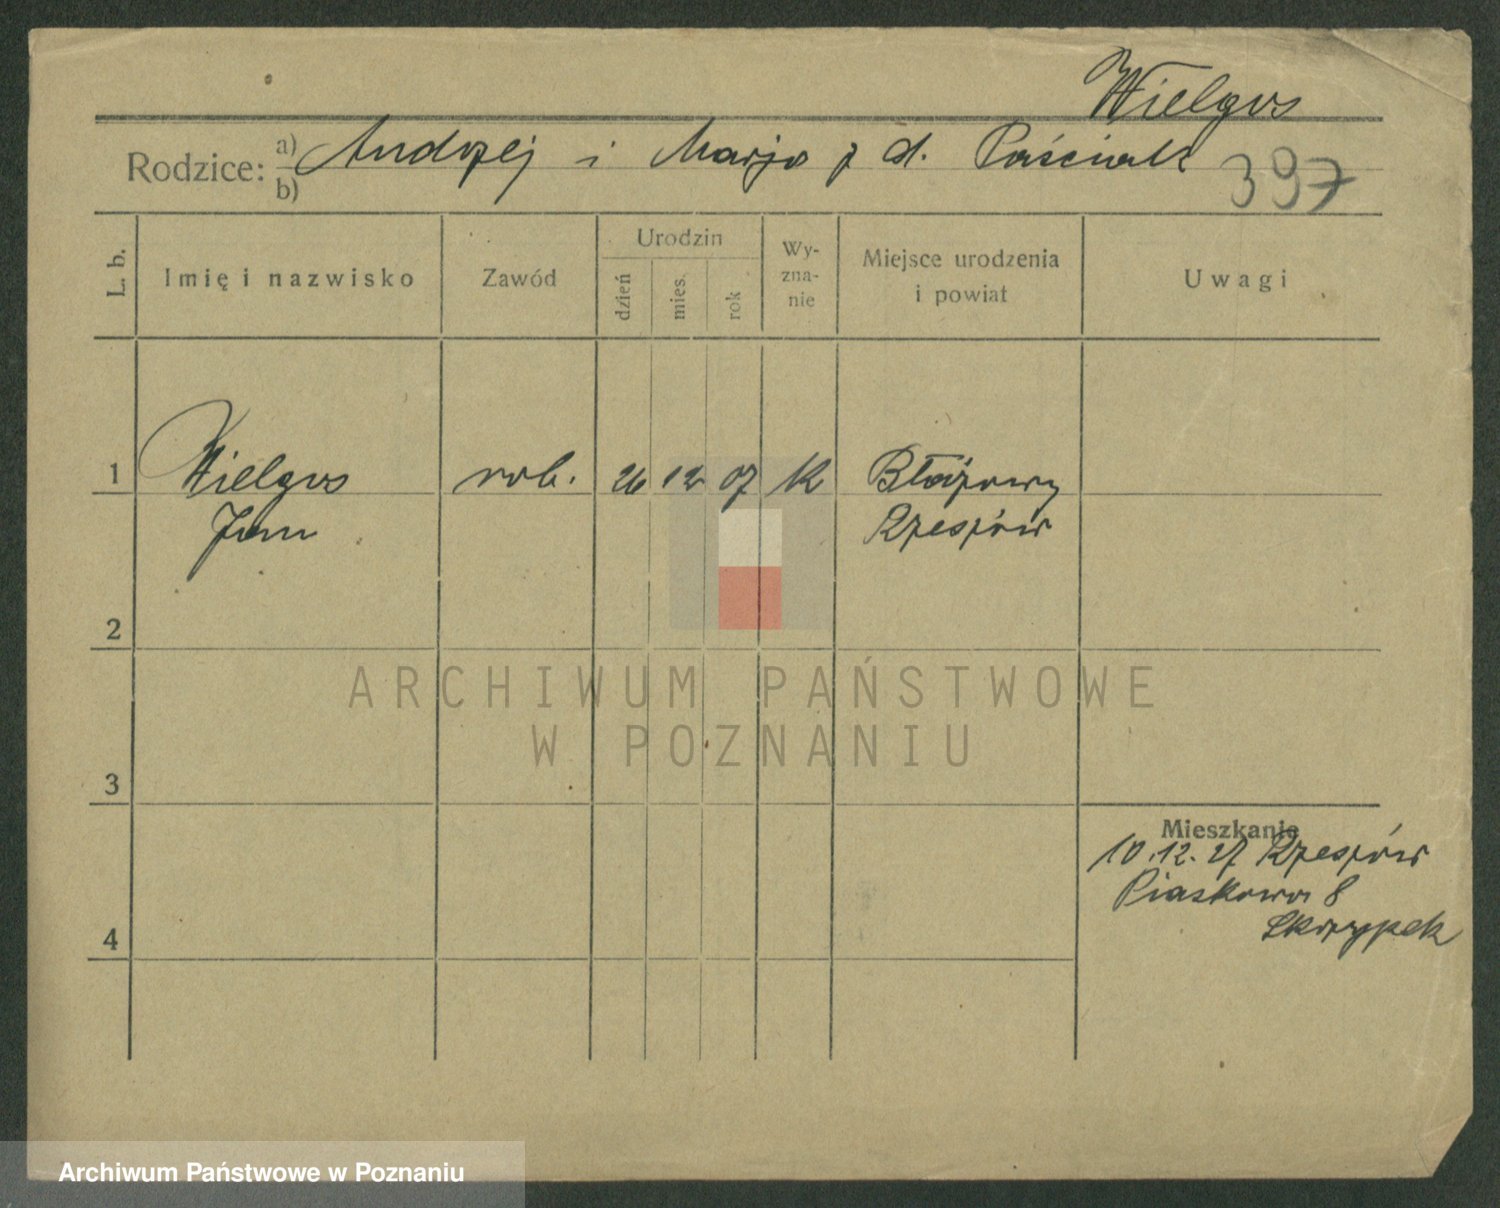 Wielgus
Rodzice: a) Andrzej i Marja z d. Paściak
b)
397
L. b.
Imię i nazwisko
Zawód
Urodzin
dzień
mies.
rok
Wy-
zna-
nie
Miejsce urodzenia
i powiat
Uwagi
1 Wielgus rob. 26 12 07 k Błażowy
Jan Rzeszów
2
3
4
Mieszkanie
10.12.27 Rzeszów
Piaskowa 8
Skrzypek
ARCHIWUM PAŃSTWOWE
W POZNANIU
Archiwum Państwowe w Poznaniu